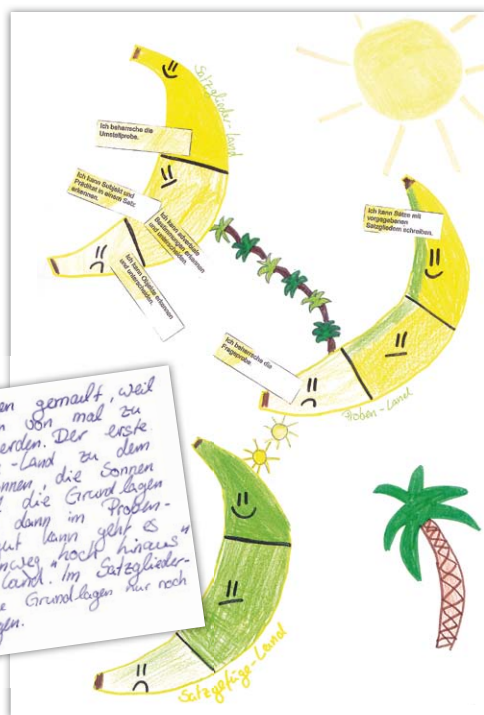 Satzglieder-Land
Ich beherrsche die
Umstellprobe.
Ich kann Subjekt und
Prädikat in einem Satz
erkennen.
Ich kann adverbiale
Bestimmungen erkennen
und unterscheiden.
Ich kann Objekte erkennen
und unterscheiden.
Ich kann Sätze mit
vorgegebenen
Satzgliedern schreiben.
Ich beherrsche die
Frageprobe.
Proben-Land
en gemalt, weil
von mal zu
erden. Der erste
-Land zu dem
nnen, die Sonnen
die Grundlagen
dann im Proben-
gut kann geht es
nweg "hoch hinaus"
Land. Im Satzglieder-
e Grundlagen nur noch
gen.
Satzgefüge-Land